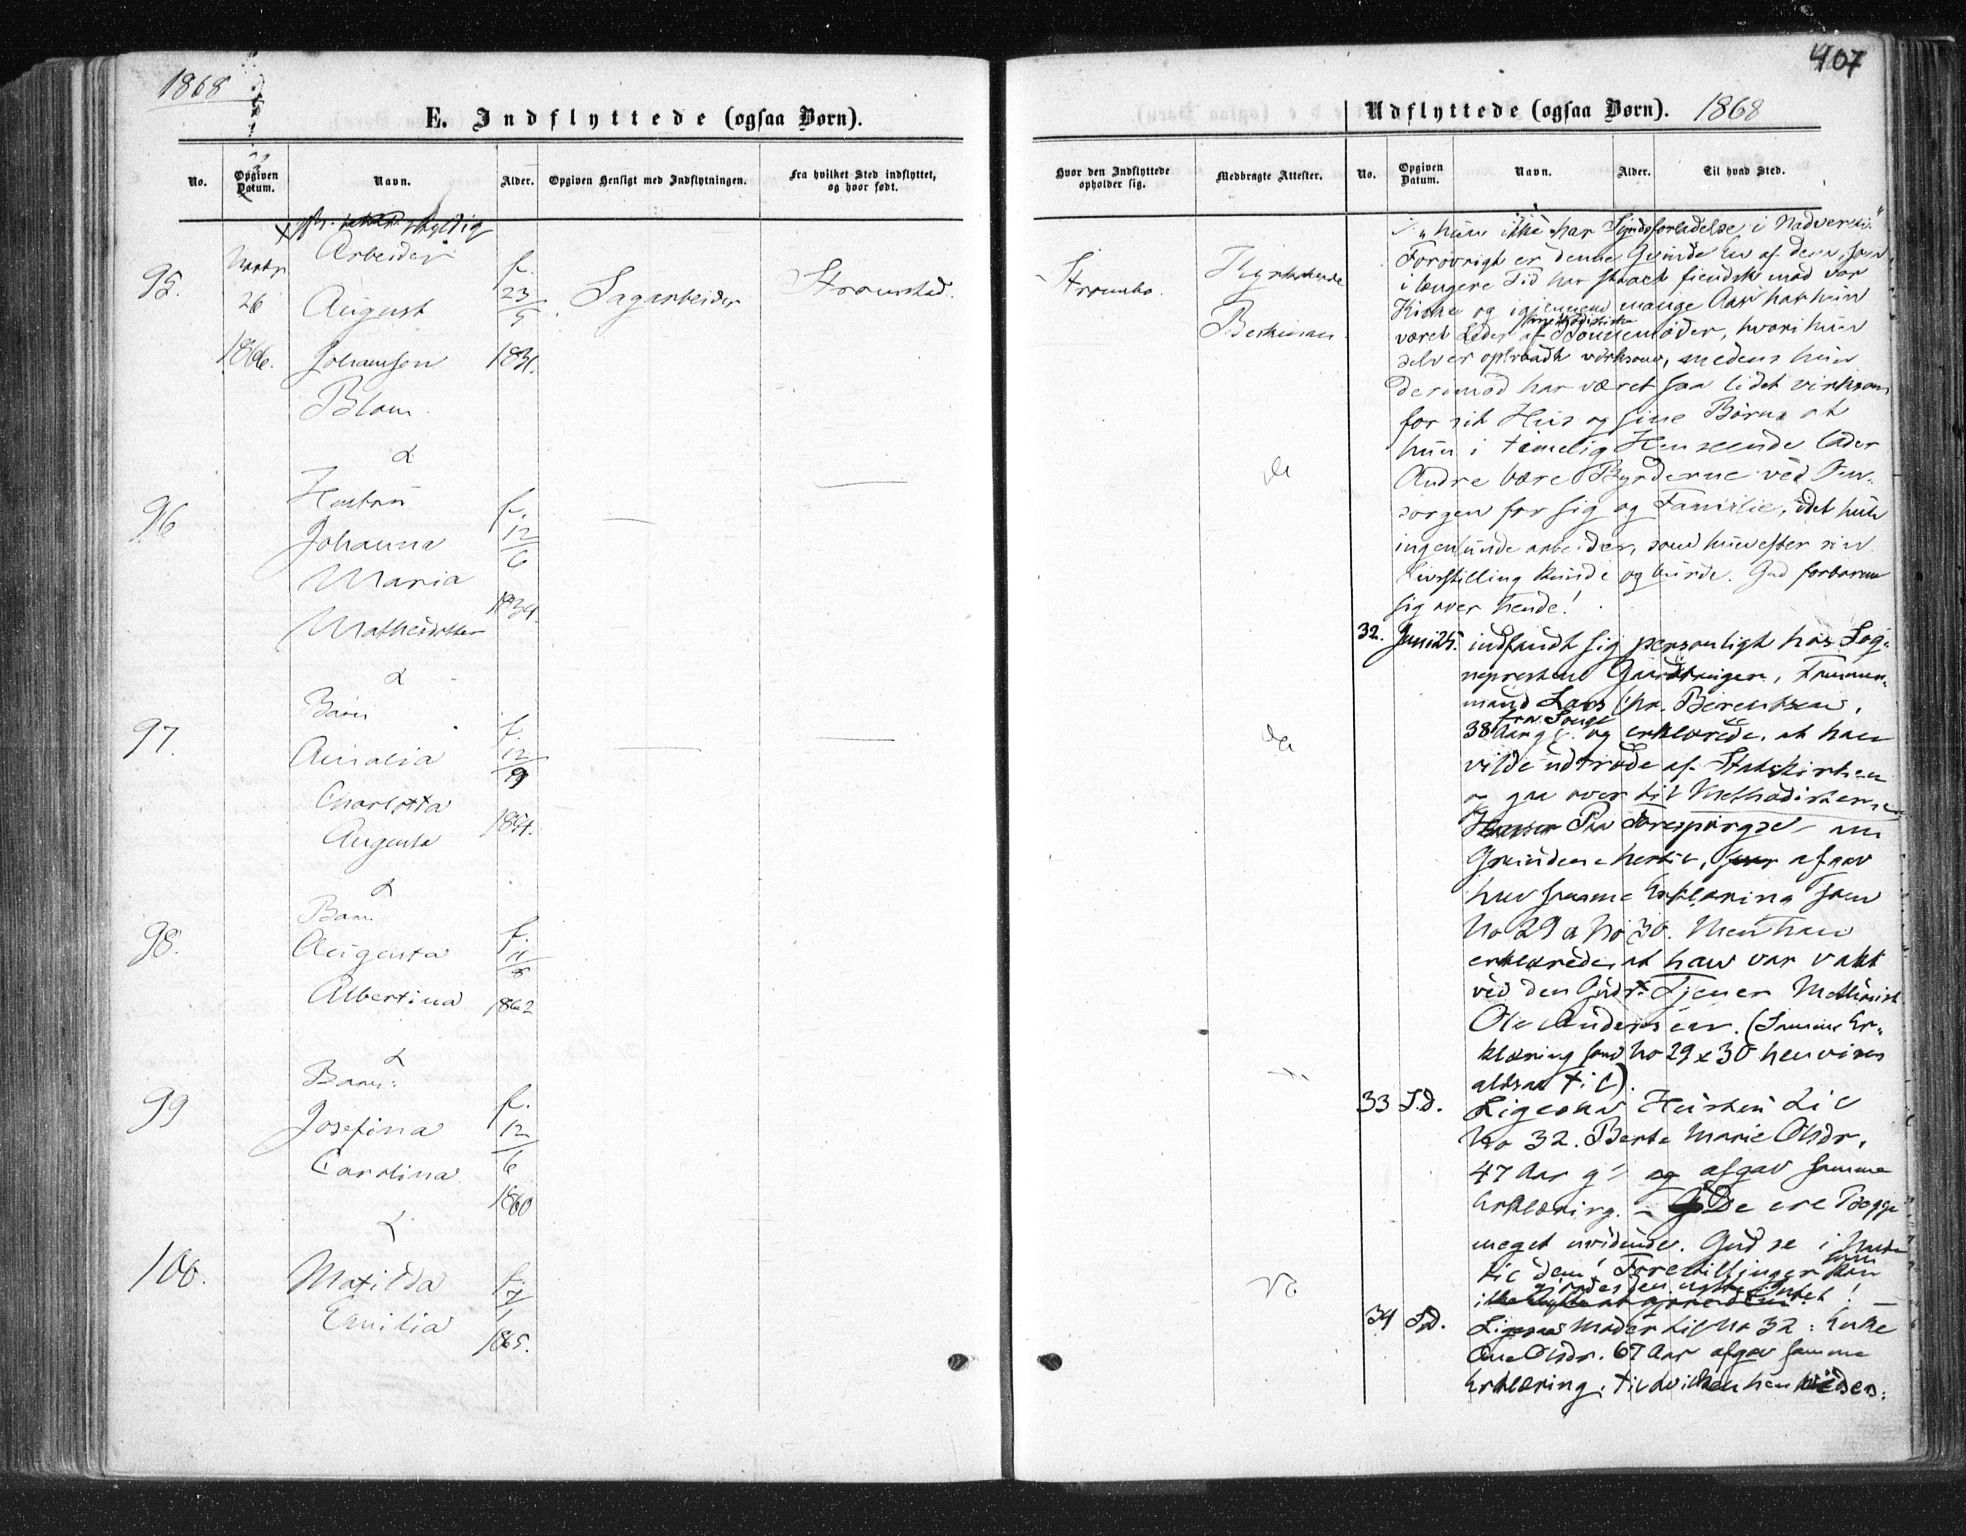 1868
E. Indflyttede (ogsaa Børn).
No.
Opgiven Datum.
Navn.
Alder.
Opgiven Hensigt med Indflytningen.
Fra hvilket Sted indflyttet, og hvor født.
95.
26
1866.
Arbeider
August
Johansson
Blom
f.
23/5
1831.
Sagarbeider
Strømstad.
96
Hustru
Johanna
Maria
f.
12/6
1834.
97.
Barn
Amalia
Charlotta
Augusta
f.
12/9
98.
Barn
Augusta
Albertina
f.
1862
99
Barn:
Josefina
Carolina
f.
12/6
1860
100.
Matilda
Emilia
1865.
407
Udflyttede (ogsaa Børn). 1868
Hvor den Indflyttede opholder sig.
Medbragte Attester.
No.
Opgiven Datum.
Navn.
Alder.
Til hvad Sted.
Strømbo.
do
do
hun ikke har Syndsforladelse i Nadveren"
Forøvrigt er denne Qvinde En af dem, som
i længere Tid har staaet fiendsk mod vor
Kirke og igjennem mange Aar har hun
været Leder af methodistiske, hvori hun
selv er optraadt virksom, medens hun
derimod har været saa lidet virksom
for sit Huus og sine Børn, at
hun i timelig Henseende lader
Andre bære Byrderne ved Om-
sorgen for sig og Familie, idet hun
ingenlunde arbeider, som hun efter sin
Livsstilling kunde og burde. Gud forbarme
sig over hende!
32. Juni 25. indfandt sig personligt hos Sog-
nepresten Gaardbruger,
mand Lars Chr. Berentsen,
38 Aar g. og erklærede, at han
vilde udtræde af Statskirken
og gaa over til Methodisterne
Paa Forespørgsel om
Grunden hertil, afgav
han samme Erklæring som
No 29 & No 30. Men han
erklærede, at han var vakt
ved den Guds Tjener Methodist
Ole Andersen. (Samme Er-
klæring som No 29 & 30 henvises
altsaa til).
33 S.d. Ligesaa Hustru til
No 32. Berte Marie Olsdr,
47 Aar g. og afgav samme
Erklæring. - De ere Begge
meget uvidende. Gud se i Naade
til dem! Forestillinger som
gjordes dem nytter Intet!
34 S.d. Ligesaa Moder til No 32: Enke
Ane Olsdr. 67 Aar afgav samme
Erklæring, til hvilken henvises.